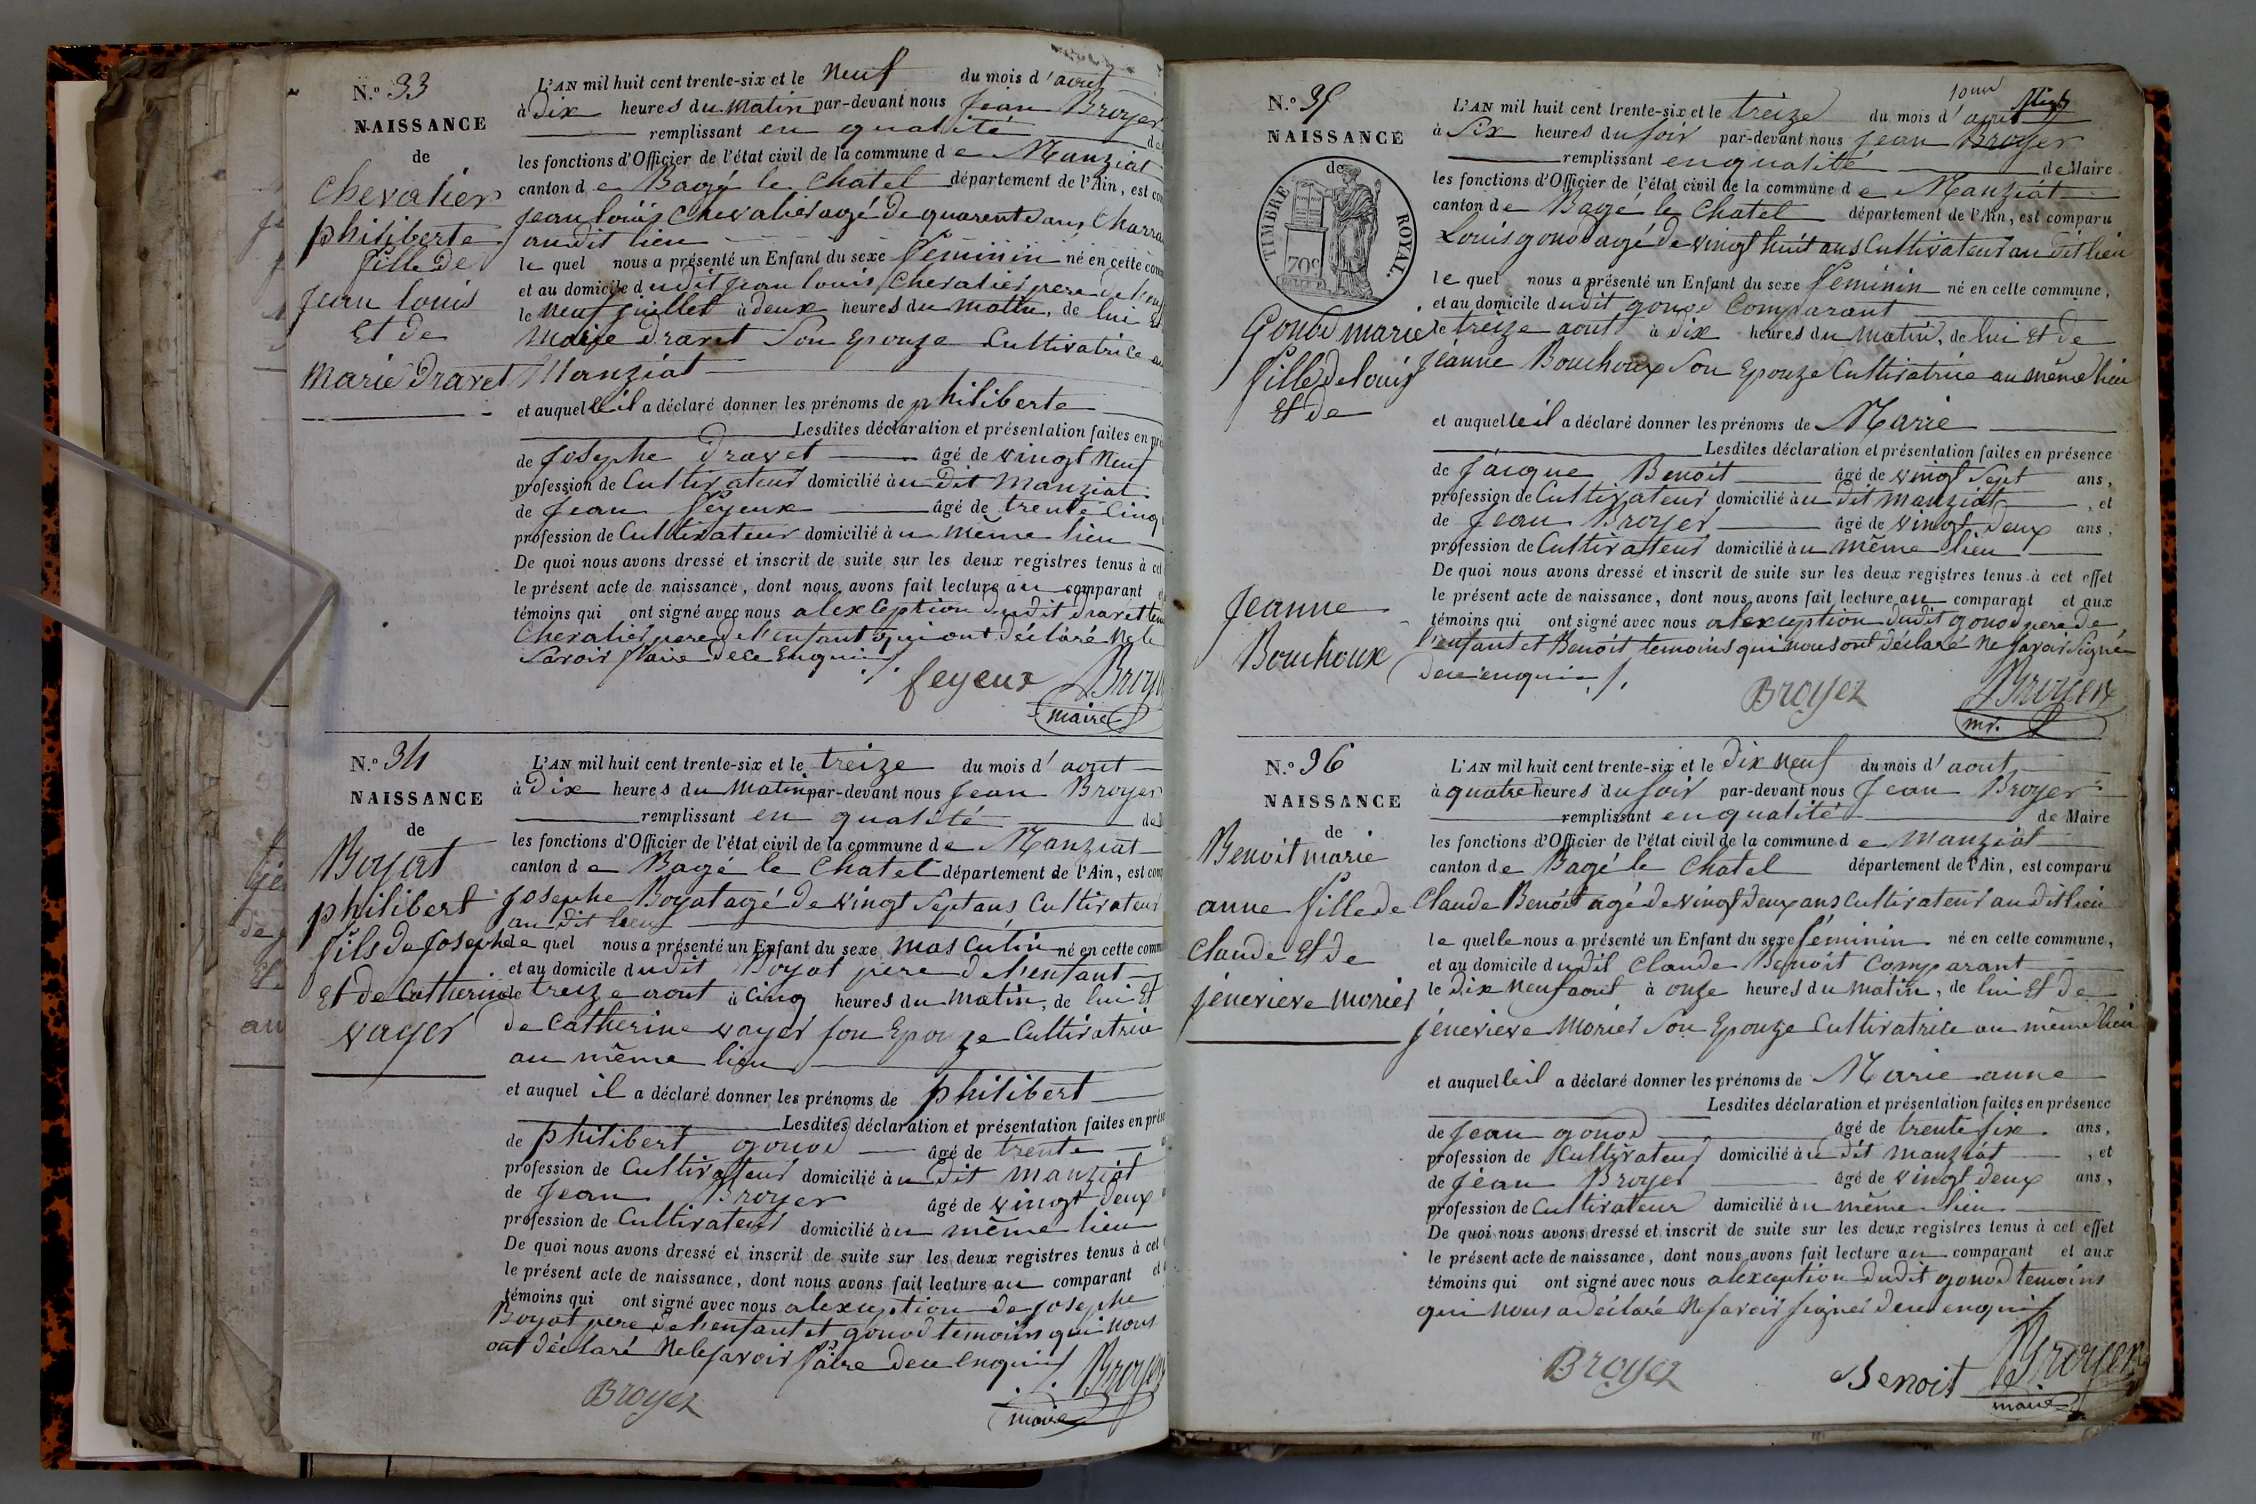 N.º 33
NAISSANCE
de
Chevalier
philiberte
fille de
Jean louis
et de
Marie dravet
L'AN mil huit cent trente-six et le neuf du mois d'aout
à Dix heures du matin par-devant nous Jean Broyer
remplissant en qualité de
les fonctions d'Officier de l'état civil de la commune de Manziat
canton de Bagé le Chatel département de l'Ain, est com
Jean louis Chevalier agé de quarente ans, Charra
au dit lieu
le quel nous a présenté un Enfant du sexe feminin né en cette com
et au domicile dudit Jean louis Chevalier pere de l'enf
le neuf juillet à deux heures du matin, de lui et
Marie dravet Son Epouze Cultivatrice au
Manziat
et auquelle il a déclaré donner les prénoms de philiberte
Lesdites déclaration et présentation faites en pré
de Josephe dravet âgé de vingt neuf
profession de Cultivateur domicilié au dit Manziat
de Jean feyeux âgé de trente Cinq
profession de Cultivateur domicilié au même lieu
De quoi nous avons dressé et inscrit de suite sur les deux registres tenus à cet
le présent acte de naissance, dont nous avons fait lecture au comparant et
témoins qui ont signé avec nous alexception dudit dravet tem
Chevalier pere de l'enfant qui ont déclaré ne le
savoir faire de ce enquis
feyeux Broyer
maire
N.º 34
NAISSANCE
de
Boyat
philibert
fils de Josephe
Et de Catherine
vayer
L'AN mil huit cent trente-six et le treize du mois d'aout
à Dix heures du matin par-devant nous Jean Broyer
remplissant en qualité de
les fonctions d'Officier de l'état civil de la commune de Manziat
canton de Bagé le Chatel département de l'Ain, est comp
Josephe Boyat agé de vingt Sept ans Cultivateur
au dit lieu
le quel nous a présenté un Enfant du sexe masculin né en cette comm
et au domicile dudit Boyat pere de l'enfant
le treize aout à cinq heures du matin, de lui Et
de Catherine vayer son Epouze Cultivatrice
au même lieu
et auquel il a déclaré donner les prénoms de philibert
Lesdites déclaration et présentation faites en prése
de philibert gonod âgé de trente
profession de Cultivateur domicilié au dit manziat
de Jean Broyer âgé de vingt deux
profession de Cultivateur domicilié au même lieu
De quoi nous avons dressé et inscrit de suite sur les deux registres tenus à cet
le présent acte de naissance, dont nous avons fait lecture au comparant et
témoins qui ont signé avec nous alexception de Josephe
Boyat pere de l'enfant et gonod temoins qui nous
ont déclaré ne le savoir faire de ce enquis
Broyer Broyer
maire
N.º 35
NAISSANCE
de
TIMBRE ROYAL.
70c
Gonod marie
fille de louis
et de
Jeanne
Bouchoux
L'AN mil huit cent trente-six et le treize du mois d'aout
à Six heures du soir par-devant nous Jean Broyer
remplissant en qualité de Maire
les fonctions d'Officier de l'état civil de la commune de Manziat
canton de Bagé le Chatel département de l'Ain, est comparu
Louis gonod agé de vingt huit ans Cultivateur au dit lieu
le quel nous a présenté un Enfant du sexe feminin né en cette commune,
et au domicile dudit gonod Comparant
le treize aout à dix heures du matin, de lui Et de
Jeanne Bouchoux Son Epouze Cultivatrice au même lieu
et auquelle il a déclaré donner les prénoms de Marie
Lesdites déclaration et présentation faites en présence
de Jacque Benoit âgé de vingt Sept ans,
profession de Cultivateur domicilié au dit manziat, et
de Jean Broyer âgé de vingt deux ans,
profession de Cultivateur domicilié au même lieu
De quoi nous avons dressé et inscrit de suite sur les deux registres tenus à cet effet
le présent acte de naissance, dont nous avons fait lecture au comparant et aux
témoins qui ont signé avec nous alexception dudit gonod pere de
l'enfant et Benoit temoins qui nous ont déclaré ne savoir signer
de ce enquis
Broyer Broyer
mr.
N.º 36
NAISSANCE
de
Benoit marie
anne fille de
Claude et de
jenevieve morier
L'AN mil huit cent trente-six et le dix neuf du mois d'aout
à quatre heures du soir par-devant nous Jean Broyer
remplissant en qualité de Maire
les fonctions d'Officier de l'état civil de la commune de manziat
canton de Bagé le Chatel département de l'Ain, est comparu
Claude Benoit agé de vingt deux ans Cultivateur au dit lieu
le quelle nous a présenté un Enfant du sexe féminin né en cette commune,
et au domicile dudit Claude Benoit Comparant
le dix neuf aout à onze heures du matin, de lui Et de
jenevieve Morier Son Epouze Cultivatrice au même lieu
et auquelle il a déclaré donner les prénoms de Marie anne
Lesdites déclaration et présentation faites en présence
de Jean gonod âgé de trente six ans,
profession de Cultivateur domicilié au dit manziat, et
de Jean Broyer âgé de vingt deux ans,
profession de Cultivateur domicilié au même lieu
De quoi nous avons dressé et inscrit de suite sur les deux registres tenus à cet effet
le présent acte de naissance, dont nous avons fait lecture au comparant et aux
témoins qui ont signé avec nous alexception dudit gonod temoins
qui nous a déclaré ne savoir signer de ce enquis
Broyer Benoit Broyer
maire